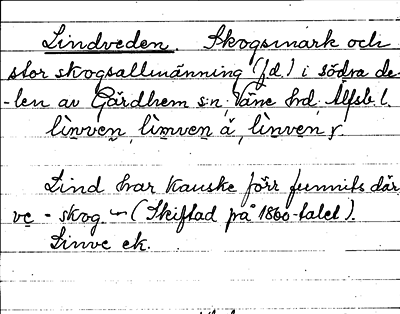 Lindveden. Skogsmark och
stor skogsallmänning (f.d.) i södra de-
-len av Gärdhem s:n, Väne hd, Älfsb. l.
lìnven, lìmven å, lìnven,
Lind har kanske förr funnits där
ve - skog - (Skiftad på 1860-talet).
Linve ek.